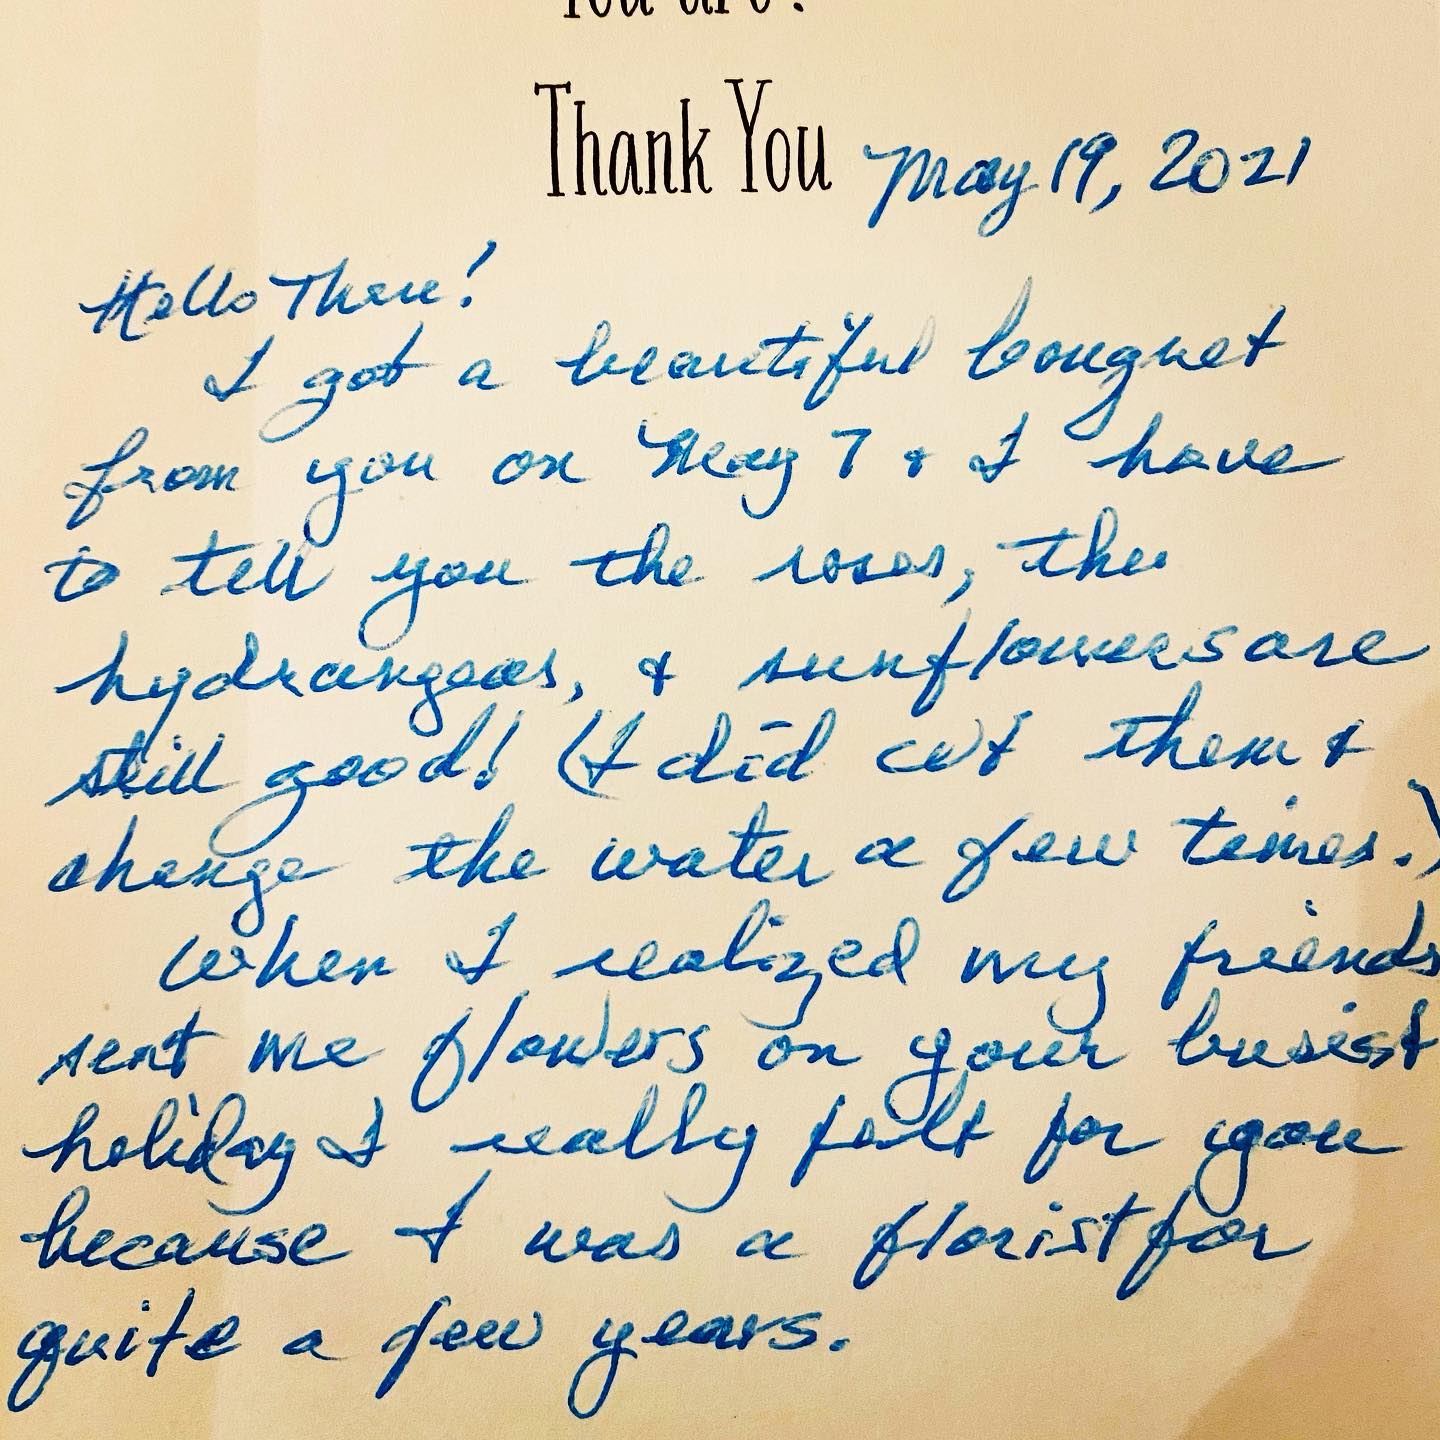 You are!
Thank You
May 19, 2021
Hello There!
I got a beautiful bouquet
from you on May 7 & I have
to tell you the roses, the
hydrangeas, & sunflowers are
still good! (I did cut them &
change the water a few times.)
When I realized my friends
sent me flowers on your busiest
holiday I really felt for you
because I was a florist for
quite a few years.